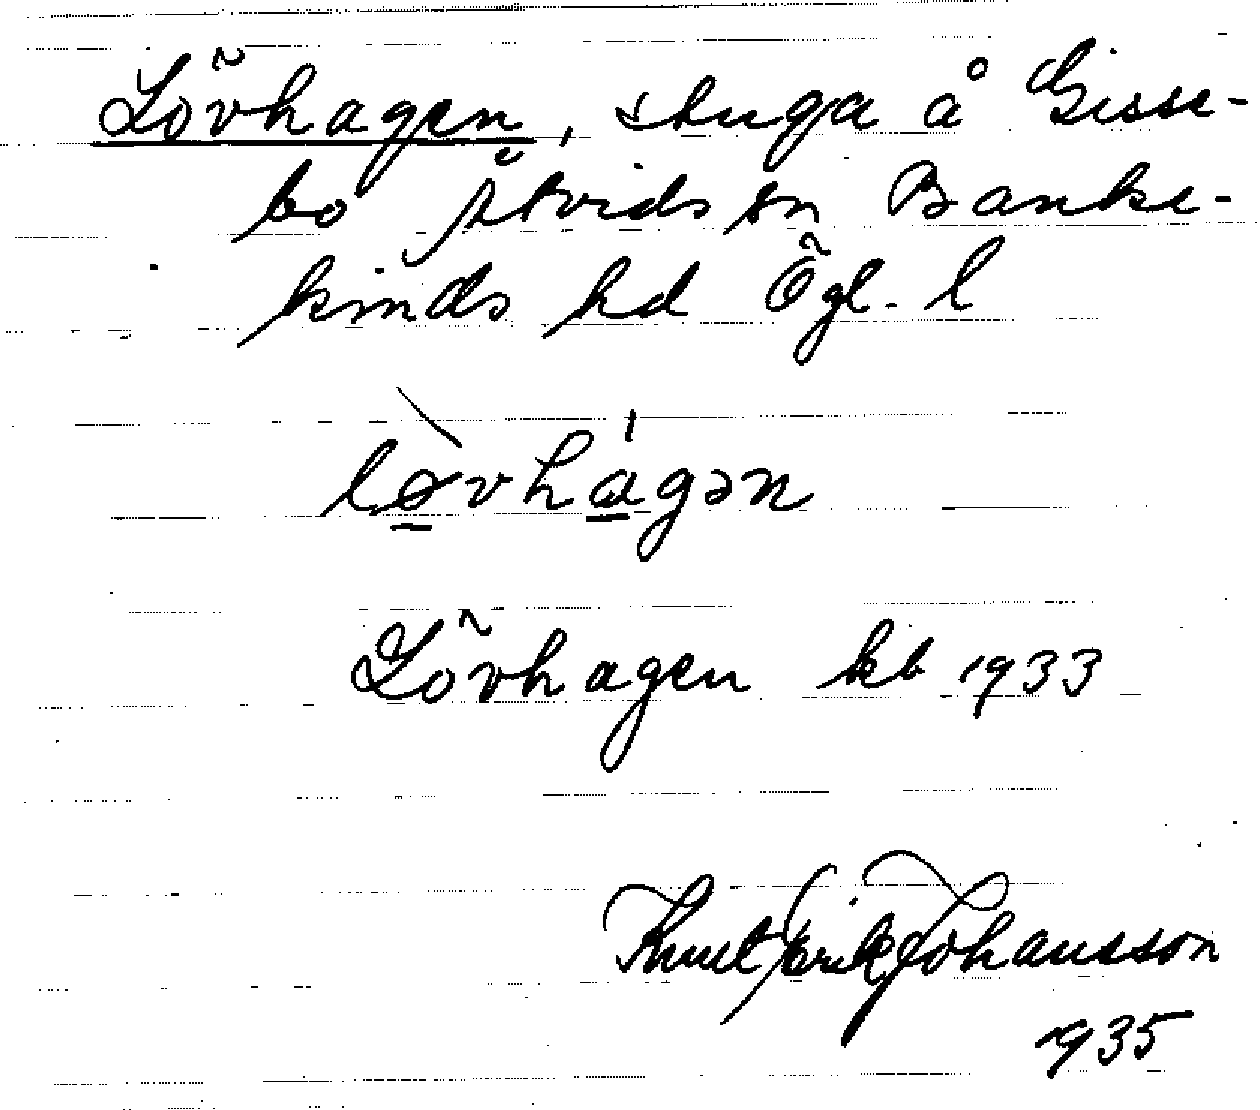 Lövhagen, stuga å Gisse-
bo Åtvids sn Banke-
kinds hd Ögl. l
løvhagən
Lövhagen kb 1933
Knut Erik Johansson
1935